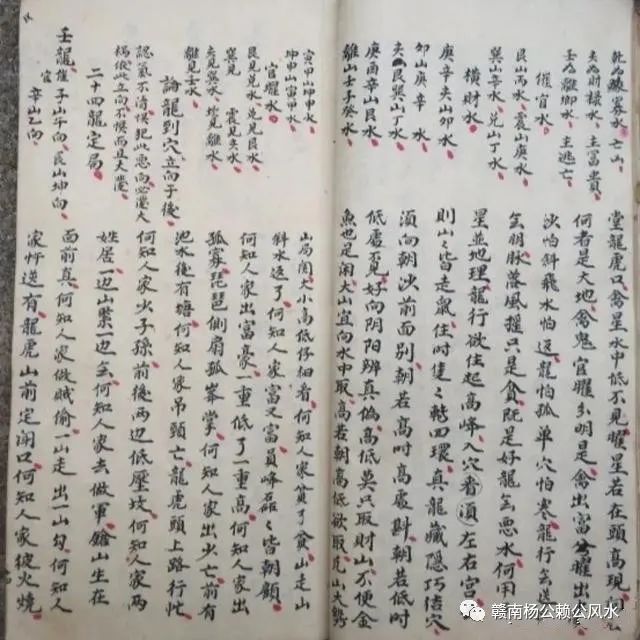 客水 亡山
夬為財禄水 主富貴
壬為離鄉水 主逃亡
催官水
艮山丙水 震山庚水
巽山辛水 兌山丁水
横財水
庚辛夬山卯水
卯山庚辛水
夬艮巽山丁水
庚酉辛山艮水
離山壬子癸水
堂龍虎口禽星水中低不見曜星若在頭高現
何者是大地禽鬼官曜明是禽出富曜出
沙怕斜飛水怕返龍怕孤單穴怕寒龍行去送
無朝脉落風擺只是貪既是好龍無惡水何用
星並地理龍行欲住起高峰入穴看須左右宮
則山山皆走氣住時隻隻轉回環真龍藏隱巧結穴
須向朝沙前面别朝若高时高處朝若低时
低處覓好向阴阳辨真偽高低莫只取財山不便金
魚也是闲大山宜向水中取高若朝高低欲取凡山大勢
寅甲山坤申水
坤申山寅甲水
官曜水
艮見水 兌見艮水
巽見 震見夬水
夬見巽水 坎見離水
離見水
論龍到穴立向于後
認氣不清悞犯此向必遭大
禍依此立向不悞而且大發
二十四龍定局
壬龍催官 子山午向 艮山坤向
辛山乙向
山局闊大小高低仔细看何知人家貧了貧山走山
斜水返了何知人家富又富員峰磊磊皆朝顧
何知人家出富豪一重低了一重高何知人家出
孤寡琵琶側扇孤峯何知人家出少亡前有
池水後有塘何知人家吊頭亡龍虎頭上路行忙
何知人家少子孫前後兩边低壓坟何知人家兩
姓居一边山一边無何知人家去做軍鎗山坐在
面前真何知人家做賊偷一山走出一山勾何知人
家忤逆有龍虎山前定闹口何知人家被火燒
赣南杨公赖公风水